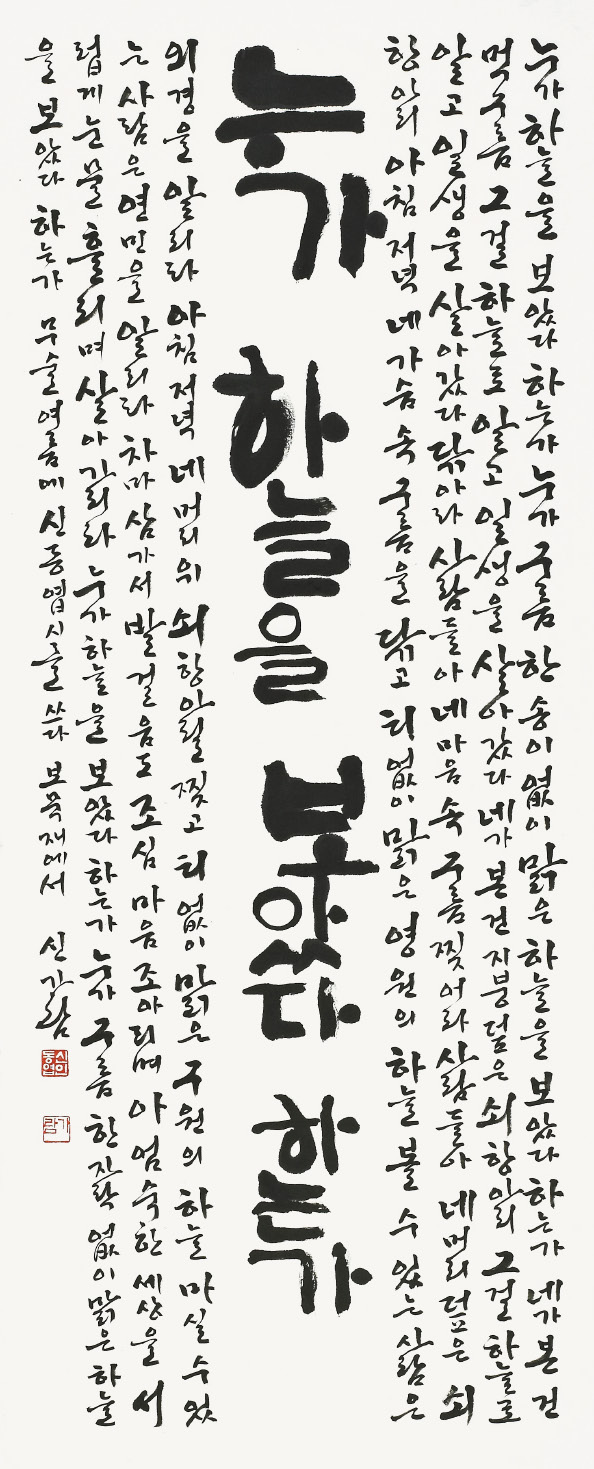 누가 하늘을 보았다 하는가 누가 구름 한 송이 없이 맑은 하늘을 보았다 하는가 네가 본 건
먹구름 그걸 하늘로 알고 일생을 살아갔다 네가 본 건 지붕 덮은 쇠항아리 그걸 하늘로
알고 일생을 살아갔다 닦아라 사람들아 네 마음 속 구름 찢어라 사람들아 네 머리 덮은 쇠
항아리 아침 저녁 네 가슴 속 구름을 닦고 티 없이 맑은 영원의 하늘 볼 수 있는 사람은
누가 하늘을 보았다 하는가
외경을 알리라 아침 저녁 네 머리 위 쇠항아릴 찢고 티 없이 맑은 구원의 하늘 마실 수 있
는 사람은 연민을 알리라 차마 삼가서 발걸음도 조심 마음 조아리며 아 엄숙한 세상을 서
럽게 눈물 흘리며 살아가리라 누가 하늘을 보았다 하는가 누가 구름 한 자락 없이 맑은 하늘
을 보았다 하는가 무술여름에 신동엽 시를 쓰다 보묵재에서 신가람
가람